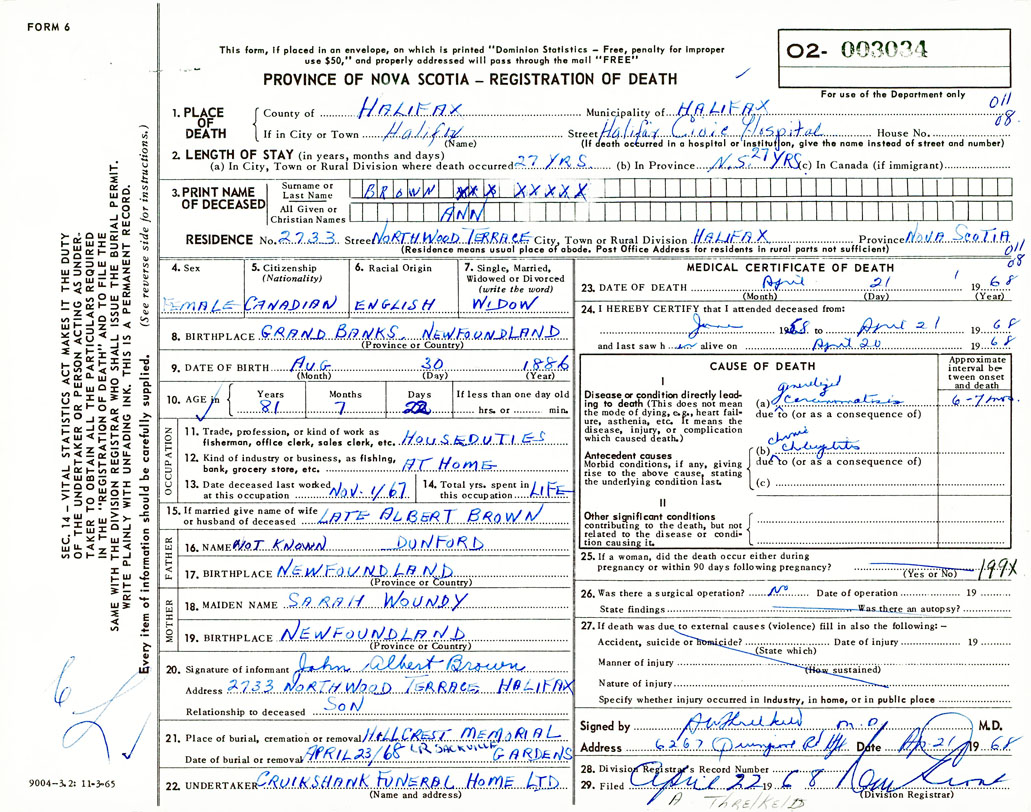 FORM 6
This form, if placed in an envelope, on which is printed "Dominion Statistics – Free, penalty for improper
use $50," and properly addressed will pass through the mail "FREE"
PROVINCE OF NOVA SCOTIA – REGISTRATION OF DEATH
02- 003034
For use of the Department only
011
08.
1. PLACE OF DEATH
County of HALIFAX Municipality of HALIFAX
If in City or Town Halifax Street Halifax Civic Hospital House No.
(Name) (If death occurred in a hospital or institution, give the name instead of street and number)
2. LENGTH OF STAY (in years, months and days)
(a) In City, Town or Rural Division where death occurred 27 YRS. (b) In Province N.S. 27 YRS. (c) In Canada (if immigrant)
3. PRINT NAME OF DECEASED
Surname or Last Name BROWN XXX XXXXX
All Given or Christian Names ANN
RESIDENCE No. 2733 Street NORTHWOOD TERRACE City, Town or Rural Division HALIFAX Province NOVA SCOTIA
(Residence means usual place of abode. Post Office Address for residents in rural parts not sufficient)
011
08
4. Sex
FEMALE
5. Citizenship (Nationality)
CANADIAN
6. Racial Origin
ENGLISH
7. Single, Married, Widowed or Divorced (write the word)
WIDOW
8. BIRTHPLACE GRAND BANKS, NEWFOUNDLAND
(Province or Country)
9. DATE OF BIRTH AUG 30 1886
(Month) (Day) (Year)
10. AGE in Years Months Days If less than one day old
81 7 22 hrs. or min.
OCCUPATION
11. Trade, profession or kind of work as
fisherman, office clerk, sales clerk, etc. HOUSEDUTIES
12. Kind of industry or business, as fishing,
bank, grocery store, etc. AT HOME
13. Date deceased last worked
at this occupation NOV. 1/67
14. Total yrs. spent in
this occupation LIFE
15. If married give name of wife
or husband of deceased LATE ALBERT BROWN
FATHER
16. NAME NOT KNOWN DUNFORD
17. BIRTHPLACE NEWFOUNDLAND
(Province or Country)
MOTHER
18. MAIDEN NAME SARAH WOUNDY
19. BIRTHPLACE NEWFOUNDLAND
(Province or Country)
20. Signature of informant John Albert Brown
Address 2733 NORTHWOOD TERRACE HALIFAX
Relationship to deceased SON
21. Place of burial, cremation or removal HILLCREST MEMORIAL
Date of burial or removal APRIL 23/68 LR SACKVILLE GARDENS
22. UNDERTAKER CRUIKSHANK FUNERAL HOME LTD
(Name and address)
MEDICAL CERTIFICATE OF DEATH
23. DATE OF DEATH April 21 1968
(Month) (Day) (Year)
24. I HEREBY CERTIFY that I attended deceased from:
June 1968 to April 21 1968
and last saw h er alive on April 20 1968
CAUSE OF DEATH
Approximate interval between onset and death
I
Disease or condition directly leading to death (This does not mean the mode of dying, e.g., heart failure, asthenia, etc. It means the disease, injury, or complication which caused death.)
generalized
(a) carcinomatosis 6-7 mos.
due to (or as a consequence of)
Antecedent causes
Morbid conditions, if any, giving rise to the above cause, stating the underlying condition last.
chronic
(b)
due to (or as a consequence of)
(c)
II
Other significant conditions
contributing to the death, but not related to the disease or condition causing it.
25. If a woman, did the death occur either during
pregnancy or within 90 days following pregnancy?
(Yes or No)
199X
26. Was there a surgical operation? No Date of operation 19
State findings Was there an autopsy?
27. If death was due to external causes (violence) fill in also the following: –
Accident, suicide or homicide? Date of injury 19
(State which)
Manner of injury
(How sustained)
Nature of injury
Specify whether injury occurred in industry, in home, or in public place
Signed by M.D. M.D.
Address 6267 Date Ap 21 1968
28. Division Registrar's Record Number
29. Filed April 22 1968
(Division Registrar)
A THRELKELD
SEC. 14 – VITAL STATISTICS ACT MAKES IT THE DUTY
OF THE UNDERTAKER OR PERSON ACTING AS UNDER-
TAKER TO OBTAIN ALL THE PARTICULARS REQUIRED
IN THE "REGISTRATION OF DEATH" AND TO FILE THE
SAME WITH THE DIVISION REGISTRAR WHO SHALL ISSUE THE BURIAL PERMIT.
WRITE PLAINLY WITH UNFADING INK. THIS IS A PERMANENT RECORD.
Every item of information should be carefully supplied. (See reverse side for instructions.)
9004-3.2: 11-3-65